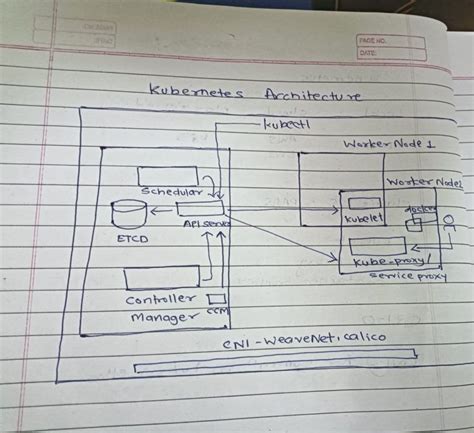 PAGE NO.
DATE:
Kubernetes Architecture
kubectl
Worker Node 1
Worker Node2
Schedular
API server
ETCD
kubelet
docker
Kube-proxy/
service proxy
Controller
Manager
CCM
CNI - WeaveNet, calico